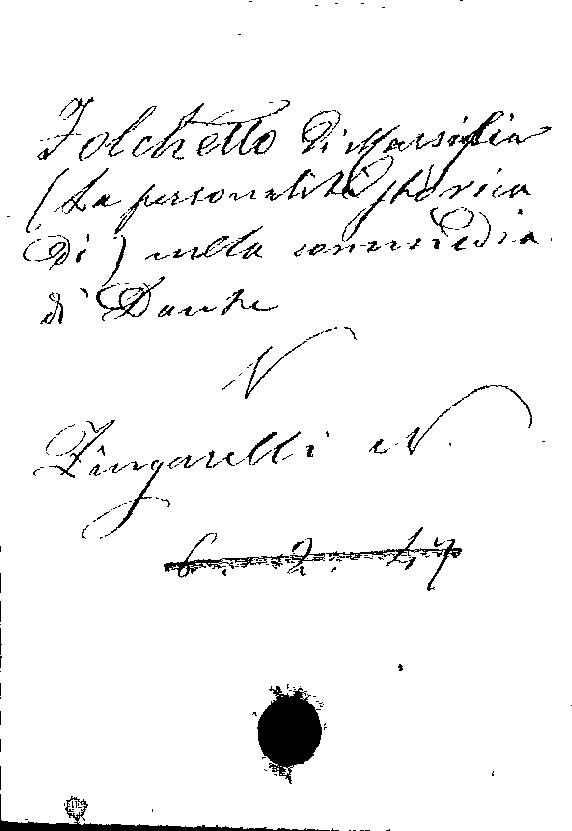 Folchetto di Marsiglia
(La personalità storica
di) nella commedia
di Dante
V
Zingarelli N.
6. 2. 47